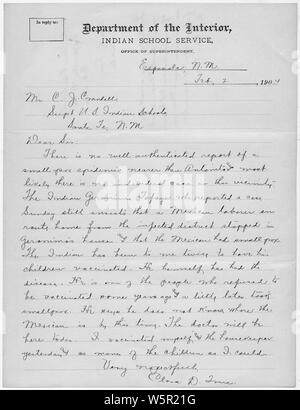 In reply to:
Department of the Interior,
INDIAN SCHOOL SERVICE,
OFFICE OF SUPERINTENDENT.
Espanola, N.M.
Feb. 2, 1904
Mr. C. J. Crandall,
Supt U S Indian Schools
Santa Fe, N.M.
Dear Sir:
There is no well authenticated report of a
small-pox epidemic nearer than Antonito & most
likely there is no individual case in this vicinity.
The Indian Geronimo Tafoya who reported a case
Sunday still insists that a Mexican laborer en
route home from the infected district stopped in
Geronimo's house & that the Mexican had small-pox.
The Indian has been to me to have his
children vaccinated. He himself has had the
disease. He is one of the people who refused to
be vaccinated some years ago & a little later took
smallpox. He says he does not know where the
Mexican is by this time. The doctor will be
here today. I vaccinated myself, & the housekeeper
yesterday & as many of the children as I could.
Very respectfully
Clara D. True
alamy
Image ID: W5R21G
www.alamy.com